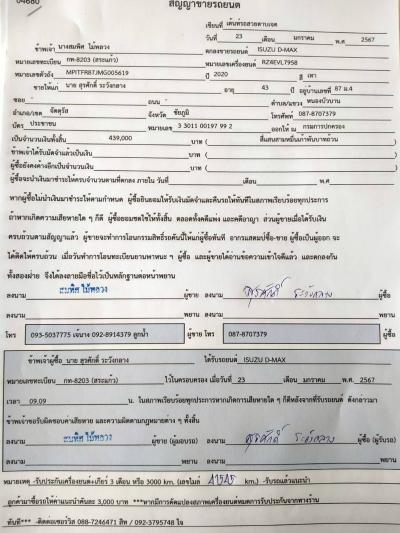 04680
สัญญาขายรถยนต์
เขียนที่ เต้นท์รถสวยดาบเจต
วันที่ 23 เดือน มกราคม พ.ศ. 2567
ข้าพเจ้า นางสมพิศ ไม้พลวง ตกลงขายรถยนต์ ISUZU D-MAX
หมายเลขทะเบียน กพ-8203 (สระแก้ว) หมายเลขเครื่องยนต์ RZ4EVL7958
หมายเลขตัวถัง MPITFR87JMG005619 ปี 2020 สี เทา
ขายให้แก่ นาย สุรศักดิ์ ระวังกลาง อายุ 43 ปี อยู่บ้านเลขที่ 87 ม.4
ซอย - ถนน - ตำบล/แขวง หนองบัวบาน
อำเภอ/เขต จัตุรัส จังหวัด ชัยภูมิ โทรศัพท์ 087-8707379
บัตร ประชาชน หมายเลข 3 3011 00197 99 2 ออกให้ ณ กรมการปกครอง
เป็นจำนวนเงินทั้งสิ้น 439,000 บาท ( สี่แสนสามหมื่นเก้าพันบาทถ้วน )
ข้าพเจ้าได้รับมัดจำแล้วเป็นเงิน บาท ( )
ผู้ซื้อยังคงค้างอีกเป็นจำนวนเงิน บาท ( )
ผู้ซื้อจะนำเงินมาชำระให้ครบจำนวนตามที่ตกลง ภายใน วันที่ เดือน พ.ศ.
หากผู้ซื้อไม่นำเงินมาชำระให้ตามกำหนด ผู้ซื้อยินยอมให้ริบเงินมัดจำและคืนรถให้ทันทีในสภาพเรียบร้อยทุกประการ
ถ้าหากเกิดความเสียหายใด ๆ ก็ดี ผู้ซื้อยอมชดใช้ให้ทั้งสิ้น ตลอดทั้งคดีแพ่ง และคดีอาญา ส่วนผู้ขายเมื่อได้รับเงิน
ครบถ้วนตามสัญญาแล้ว ผู้ขายจะทำการโอนกรรมสิทธิ์รถคันนี้ให้แก่ผู้ซื้อทันที อากรแสตมป์ซื้อ-ขาย ผู้ซื้อเป็นผู้ออก จะ
ได้ติดให้ครบถ้วน เมื่อวันทำการโอนทะเบียนยานพาหนะ ๆ ผู้ซื้อ และผู้ขายได้อ่านข้อความเข้าใจดีแล้ว และตกลงกัน
ทั้งสองฝ่าย จึงได้ลงลายมือชื่อไว้เป็นหลักฐานต่อหน้าพยาน
ลงนาม สมพิศ ไม้พลวง ผู้ขาย ลงนาม สุรศักดิ์ ระวังกลาง ผู้ซื้อ
ลงนาม พยาน ลงนาม พยาน
โทร 093-5037775 เจ้นาง 092-8914379 ลูกน้ำ ผู้ขาย โทร 087-8707379 ผู้ซื้อ
ข้าพเจ้าผู้ซื้อ นาย สุรศักดิ์ ระวังกลาง ได้รับรถยนต์ ISUZU D-MAX
หมายเลขทะเบียน กพ-8203 (สระแก้ว) ไว้ในครอบครอง เมื่อวันที่ 23 เดือน มกราคม พ.ศ. 2567
เวลา 09.09 น. ในสภาพเรียบร้อยทุกประการหากเกิดการเสียหายใด ๆ ก็ดีหลังจากที่รับรถยนต์ ดังกล่าวมา
ข้าพเจ้าขอรับผิดชอบค่าเสียหาย และความผิดตามกฎหมายต่าง ๆ ทั้งสิ้น
ลงนาม สมพิศ ไม้พลวง ผู้ขาย (ผู้มอบรถ) ลงนาม สุรศักดิ์ ระวังกลาง ผู้ซื้อ (ผู้รับรถ)
ลงนาม พยาน ลงนาม พยาน
หมายเหตุ -รับประกันเครื่องยนต์+เกียร์ 3 เดือน หรือ 3000 km. (เลขไมล์ km.) -รับรถแล้วแนะนำ
ลูกค้ามาซื้อรถให้ค่าแนะนำคันละ 3,000 บาท ***หากมีการดัดแปลงสภาพเครื่องยนต์หมดการรับประกันจากทางร้าน
ทันที*** -ติดต่อเซอร์วิส 088-7246471 สิท / 092-3795748 ใจ